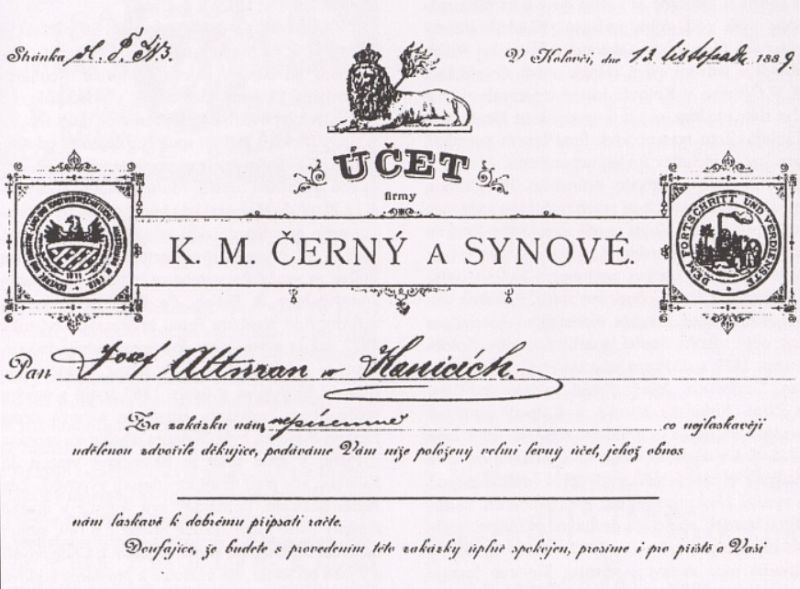 Stránka
V Kolovči, dne 13. listopadu 1889
ÚČET
firmy
K. M. ČERNÝ A SYNOVÉ.
1811
DEM FORTSCHRITT UND VERDIENSTE
Pan Josef Altman v Hanicích.
Za zakázku nám co nejlaskavěji
udělenou zdvořile děkujíce, podáváme Vám níže položený velmi levný účet, jehož obnos
nám laskavě k dobrému připsati račte.
Doufajíce, že budete s provedením této zakázky úplně spokojen, prosíme i pro příště o Vaši